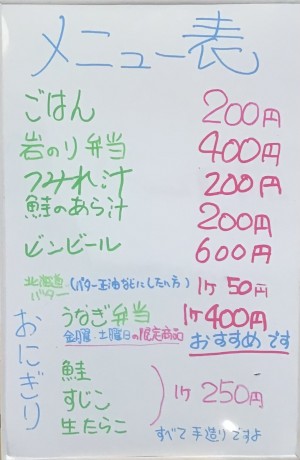 メニュー表
ごはん 200円
岩のり弁当 400円
つみれ汁 200円
鮭のあら汁 200円
ビンビール 600円
北海道バター (バター玉油などにしたい方) 1ヶ 50円
うなぎ弁当 1ヶ 400円
金曜・土曜日の限定商品 おすすめです
おにぎり
鮭
すじこ 1ヶ 250円
生たらこ
すべて手造りですよ